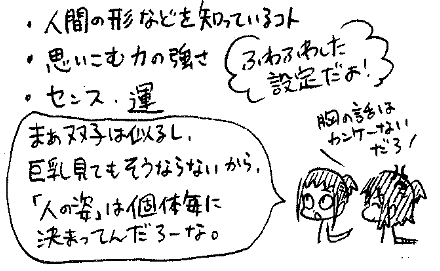 ・人間の形などを知っているコト
・思いこむ力の強さ
・センス・運
ふわふわした
設定だよ!
まぁ双子は似るし、
巨乳見てもそうならないから、
「人の姿」は個体毎に
決まってんだろーな。
胸の話は
カンケーない
だろ!